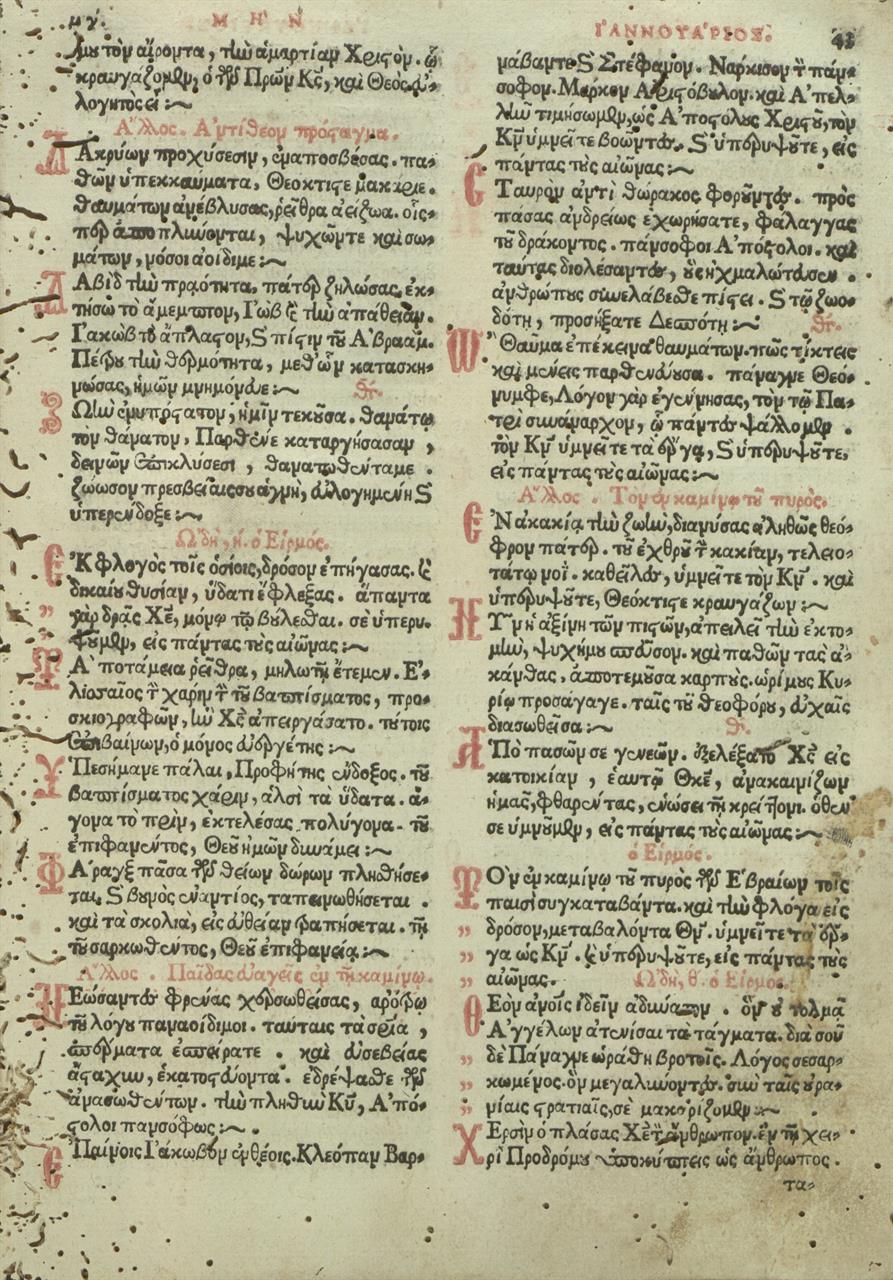 μγ. ΜΗΝ
μου τὸν αἴροντα, τὴν ἁμαρτίαν Χριστόν. ᾧ
κραυγάζομεν, ὁ τῶν Πρων Κς, καὶ Θεὸς εὐ-
λογητὸς εἶ :~
Ἄλλος. Ἀντίθεον πρόσταγμα.
ΔΑκρύων προχύσεσιν, ἐναποσβέσας. πα-
θῶν ὑπεκκαύματα, Θεόκτιστε μακάριε.
θαυμάτων ἀνέβλυσας, ῥεῖθρα ἀείζωα. οἷς-
περ ἀποπλύνονται, ψυχῶντε καὶ σω-
μάτων, νόσοι ἀοίδιμε :~
ΔΑβὶδ τὴν πραότητα, πάτερ ζηλώσας, ἐκ-
τήσω τὸ ἄμεμπτον, Ἰὼβ καὶ τὴν ἀπάθειαν.
Ἰακὼβ τὸ ἄπλαστον, καὶ πίστιν τοῦ Ἀβραάμ.
Πέτρου τὴν θερμότητα, μεθ' ὧν κατασκη-
νώσας, ἡμῶν μνημόνευε :~ Θκ.
ΖΩὴν ἐνυπόστατον, ἡμῖν τεκοῦσα. θανάτῳ
τὸν θάνατον, Παρθένε καταργήσασαν,
δεινῶν ἐπικλύσεσι, θανατωθέντα με.
ζώωσον πρεσβείαις σου ἁγνή, εὐλογημένη καὶ
ὑπερένδοξε :~
ᾨδὴ, η. ὁ Εἱρμός.
ἘΚ φλογὸς τοῖς ὁσίοις, δρόσον ἐπήγασας. καὶ
δικαίου θυσίαν, ὕδατι ἔφλεξας. ἅπαντα
γὰρ δρᾷς Χε, μόνῳ τῷ βούλεσθαι. σὲ ὑπερυ-
ψοῦμεν, εἰς πάντας τοὺς αἰῶνας :~
ΤΑ ποτάμεια ῥεῖθρα, μηλωτῇ ἔτεμεν. Ἐ-
λισσαῖος τὴν χάριν τὴν τοῦ βαπτίσματος, προ-
σκιογραφῶν, ἣν Χς ἀπειργάσατο. τούτοις
ἐπιβαίνων, ὁ μόνος εὐεργέτης :~
ὙΠεσήμανε πάλαι, Προφήτης ἔνδοξος. τοῦ
βαπτίσματος χάριν, ἁλσὶ τὰ ὕδατα. ἄ-
γονα τὸ πρὶν, ἐκτελέσας πολύγονα. τοῦ
ἐπιφανέντος, Θεοῦ ἡμῶν δυνάμει :~
ΦΑραγξ πᾶσα τῶν θείων δώρων πληθήσε-
ται, καὶ βουνὸς ἐναντίος, ταπεινωθήσεται.
καὶ τὰ σκολιὰ, εἰς εὐθεῖαν τραπήσεται. τῇ
τοῦ σαρκωθέντος, Θεοῦ ἐπιφανείᾳ :~
Ἄλλος. Παῖδας εὐαγεῖς ἐν τῇ καμίνῳ.
ΝΕώσαντες φρένας χερσωθείσας, ἀρότρῳ
τοῦ λόγου παναοίδιμοι. ταύταις τὰ σωτήρια,
σπέρματα ἐσπείρατε. καὶ εὐσεβείας
ἄσταχυν, ἑκατοστεύοντα. ἐδρέψασθε τῶν
ἀνασωθέντων. τὴν πληθὺν Κυ, Ἀπό-
στολοι πανσόφως :~
ἘΠαίνοις Ἰάκωβον ἐνθέοις. Κλεόπαν Βαρ-
ΙΑΝΝΟΥΑΡΙΟΣ. 43
νάβαντε καὶ Στέφανον. Νάρκισον τὸν πάν-
σοφον. Μάρκον Ἀριστόβουλον. καὶ Ἀπελ-
λὴν τιμήσωμεν, ὡς Ἀποστόλους Χριστοῦ, τὸν
Κν ὑμνεῖτε βοῶντες. καὶ ὑπερυψοῦτε, εἰς
πάντας τοὺς αἰῶνας :~
ΣΤαυρὸν ἀντὶ θώρακος φοροῦντες. πρὸς
πάσας ἀνδρείως ἐχωρήσατε, φάλαγγας
τοῦ δράκοντος. πάνσοφοι Ἀπόστολοι. καὶ
ταύτας διολέσαντες, οὓς ᾐχμαλώτευσεν.
ἀνθρώπους συνελάβεσθε πίστει. καὶ τῷ ζωο-
δότῃ, προσήξατε Δεσπότῃ :~ Θκ.
Ὢ Θαῦμα ἐπέκεινα θαυμάτων. πῶς τίκτεις
καὶ μένεις παρθενεύουσα. πάναγνε Θεό-
νυμφε, Λόγον γὰρ ἐγέννησας, τὸν τῷ Πα-
τρὶ συνάναρχον, ᾧ πάντες ψάλλομεν.
τὸν Κν ὑμνεῖτε τὰ ἔργα, καὶ ὑπερυψοῦτε,
εἰς πάντας τοὺς αἰῶνας :~
Ἄλλος. Τὸν ἐν καμίνῳ τοῦ πυρός.
ἘΝ ἀκακίᾳ τὴν ζωὴν, διανύσας ἀληθῶς θεό-
φρον πάτερ. τοῦ ἐχθροῦ τὴν κακίαν, τελειο-
τάτῳ νοῒ. καθεῖλες, ὑμνεῖτε τὸν Κν. καὶ
ὑπερυψοῦτε, Θεόκτιστε κραυγάζων :~
ἩΤΜΗ ἀξίνη τῶν πιστῶν, ἀπειλεῖ τὴν ἐκτο-
μὴν, ψυχή μου σπεῦσον. καὶ παθῶν τὰς ἀ-
κάνθας, ἀποτεμοῦσα καρποὺς. ὡρίμους Κυ-
ρίῳ προσάγαγε. ταῖς τοῦ θεοφόρου, εὐχαῖς
διασωθεῖσα :~ Θκ.
ἈΠὸ πασῶν σε γενεῶν. ἐξελέξατο Χς εἰς
κατοικίαν, ἑαυτῷ Θκε, ἀνακαινίζων
ἡμᾶς, φθαρέντας, ἑνώσει τῇ κρείττονι. ὅθεν
σε ὑμνοῦμεν, εἰς πάντας τοὺς αἰῶνας :~
ὁ Εἱρμός.
ΤΟν ἐν καμίνῳ τοῦ πυρὸς τῶν Ἑβραίων τοῖς
παισὶ συγκαταβάντα. καὶ τὴν φλόγα εἰς
δρόσον, μεταβαλόντα Θν. ὑμνεῖτε τὰ ἔρ-
γα ὡς Κν. καὶ ὑπερυψοῦτε, εἰς πάντας τοὺς
αἰῶνας. ᾨδὴ, θ. ὁ Εἱρμός.
ΘΕὸν ἀνοῖς ἰδεῖν ἀδύνατον. ὃν οὐ τολμᾷ
Ἀγγέλων ἀτενίσαι τὰ τάγματα. διὰ σοῦ
δὲ Πάναγνε ὡράθη βροτοῖς. Λόγος σεσαρ-
κωμένος. ὃν μεγαλύνοντες. σὺν ταῖς οὐρα-
νίαις στρατιαῖς, σὲ μακαρίζομεν :~
ΧΕρσὶν ὁ πλάσας Χε τὸν ἄνθρωπον. ἐν τῇ χει-
ρὶ Προδρόμου ὑποκύπτεις ὡς ἄνθρωπος.
τα-